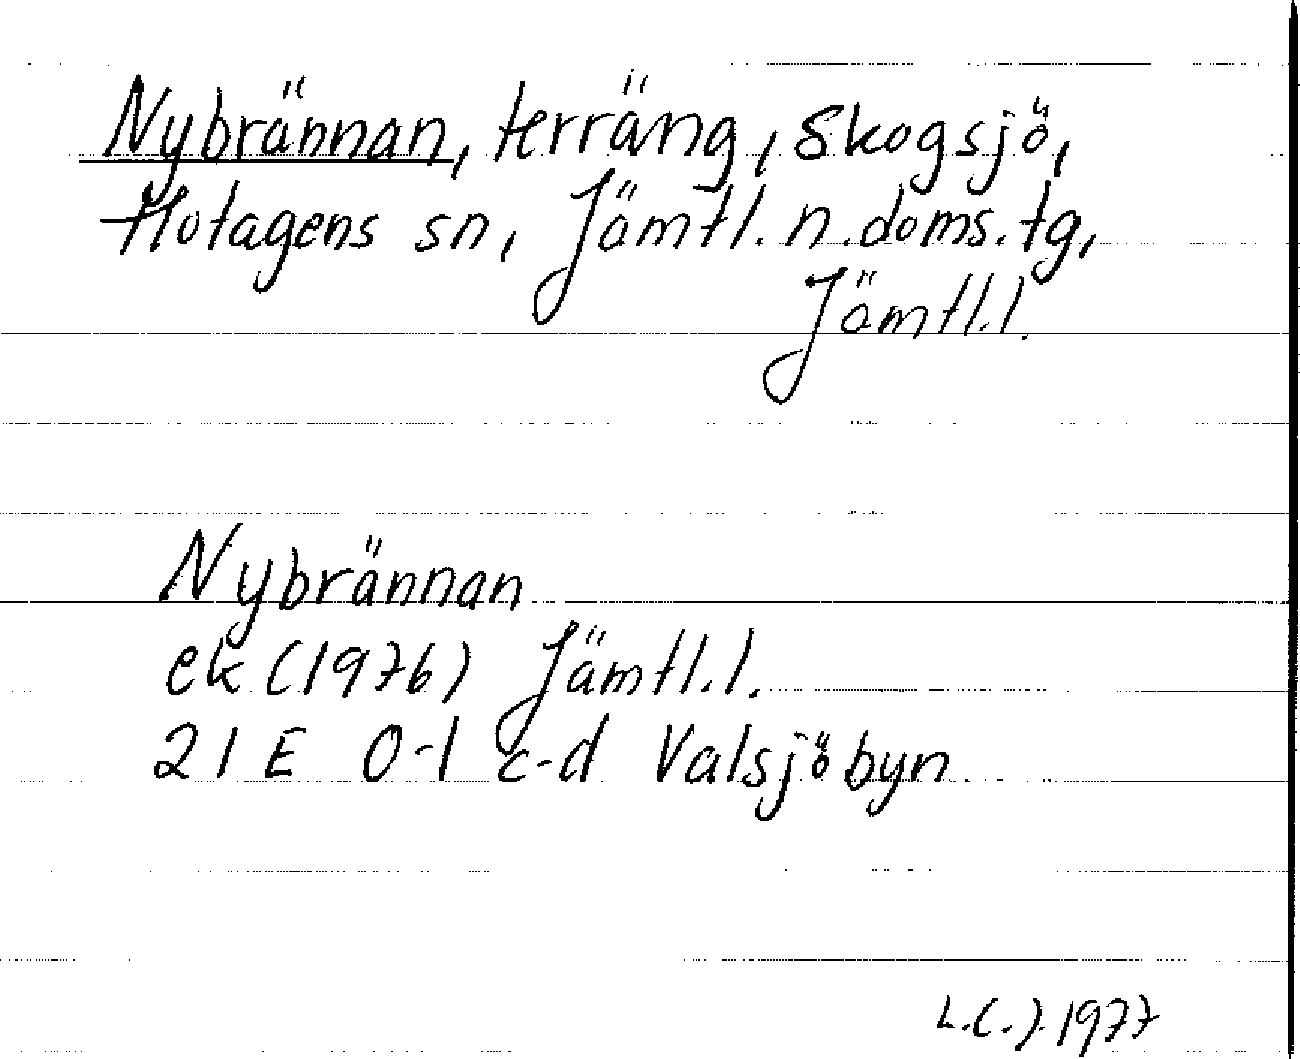 Nybrännan, terräng, Skogsjö,
Hotagens sn, Jämtl. n. doms. tg,
Jämtl.l.
Nybrännan
ek (1976) Jämtl.l.
21 E 0-1 c-d Valsjöbyn
L.C.J. 1977